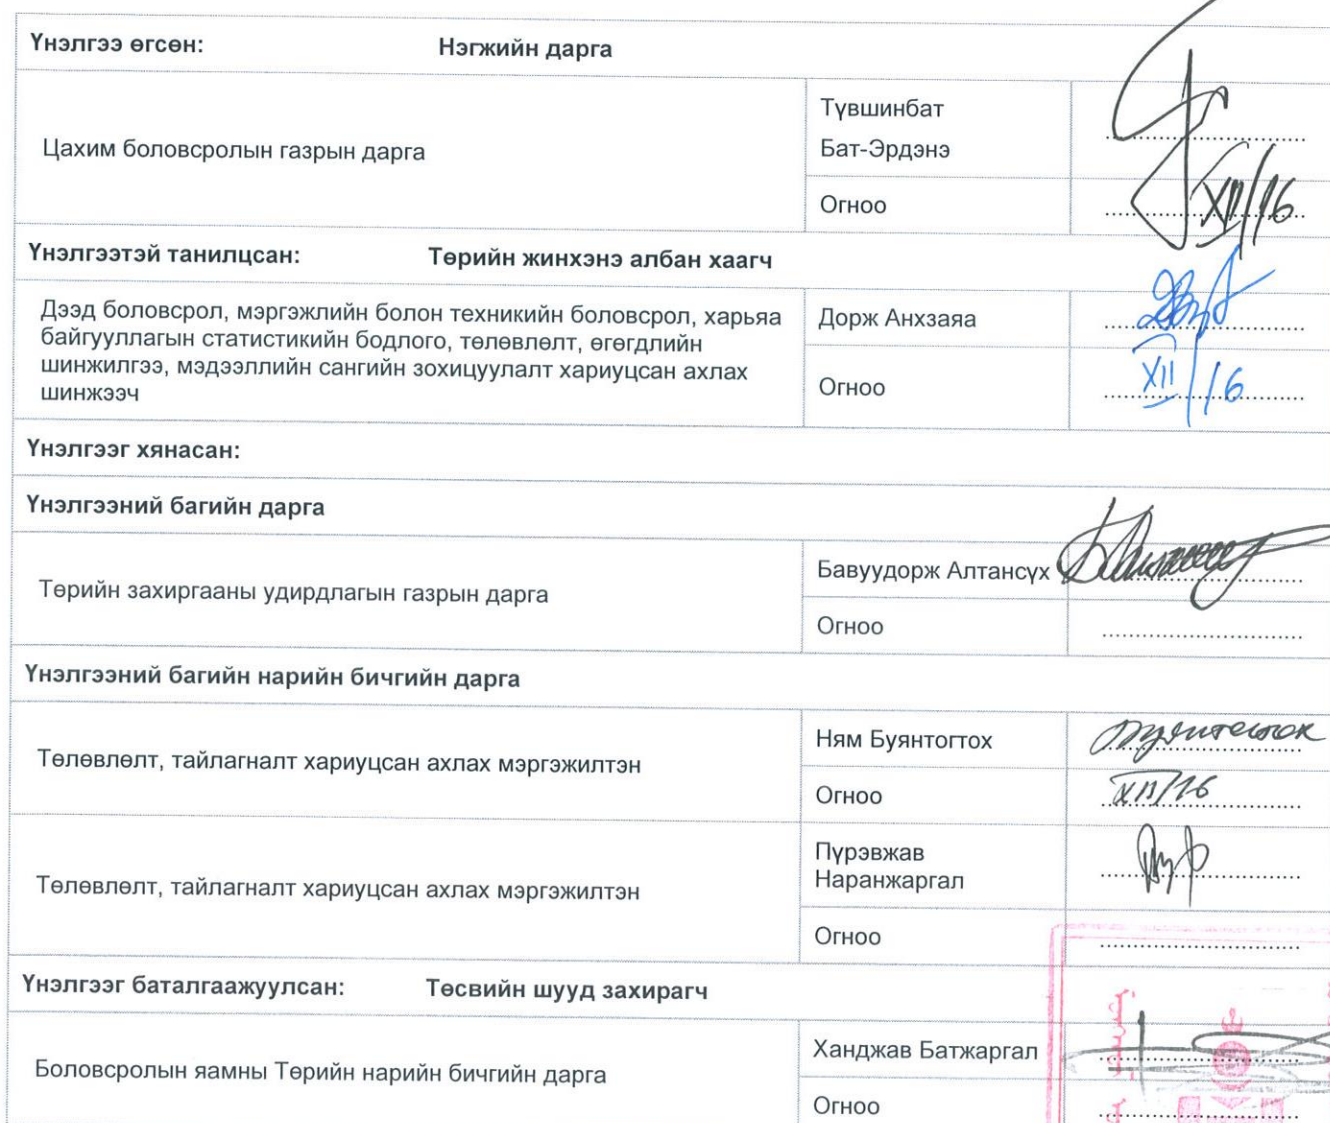 Үнэлгээ өгсөн: Нэгжийн дарга
Цахим боловсролын газрын дарга
Түвшинбат
Бат-Эрдэнэ
Огноо
XII/16
Үнэлгээтэй танилцсан: Төрийн жинхэнэ албан хаагч
Дээд боловсрол, мэргэжлийн болон техникийн боловсрол, харьяа
байгууллагын статистикийн бодлого, төлөвлөлт, өгөгдлийн
шинжилгээ, мэдээллийн сангийн зохицуулалт хариуцсан ахлах
шинжээч
Дорж Анхзаяа
Огноо
XII/16
Үнэлгээг хянасан:
Үнэлгээний багийн дарга
Төрийн захиргааны удирдлагын газрын дарга
Бавуудорж Алтансүх
Огноо
Үнэлгээний багийн нарийн бичгийн дарга
Төлөвлөлт, тайлагналт хариуцсан ахлах мэргэжилтэн
Ням Буянтогтох
Огноо
XII/16
Төлөвлөлт, тайлагналт хариуцсан ахлах мэргэжилтэн
Пүрэвжав
Наранжаргал
Огноо
Үнэлгээг баталгаажуулсан: Төсвийн шууд захирагч
Боловсролын яамны Төрийн нарийн бичгийн дарга
Ханджав Батжаргал
Огноо